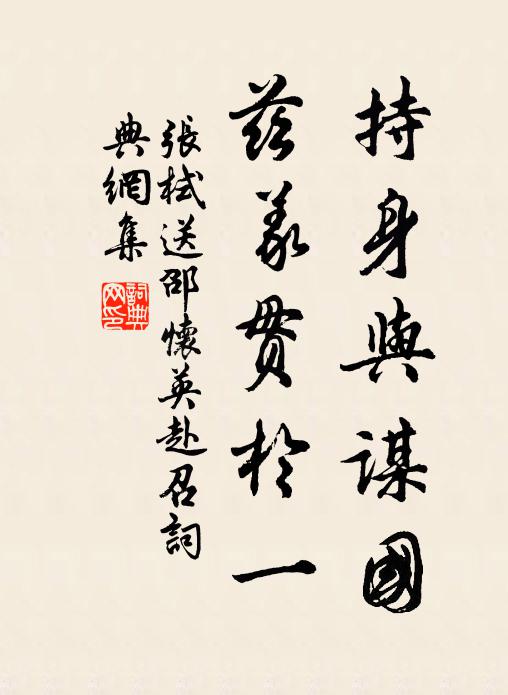 持身與謀國
茲義貫於一
張栻送邵懷英赴召詞
典網集
詞典网印